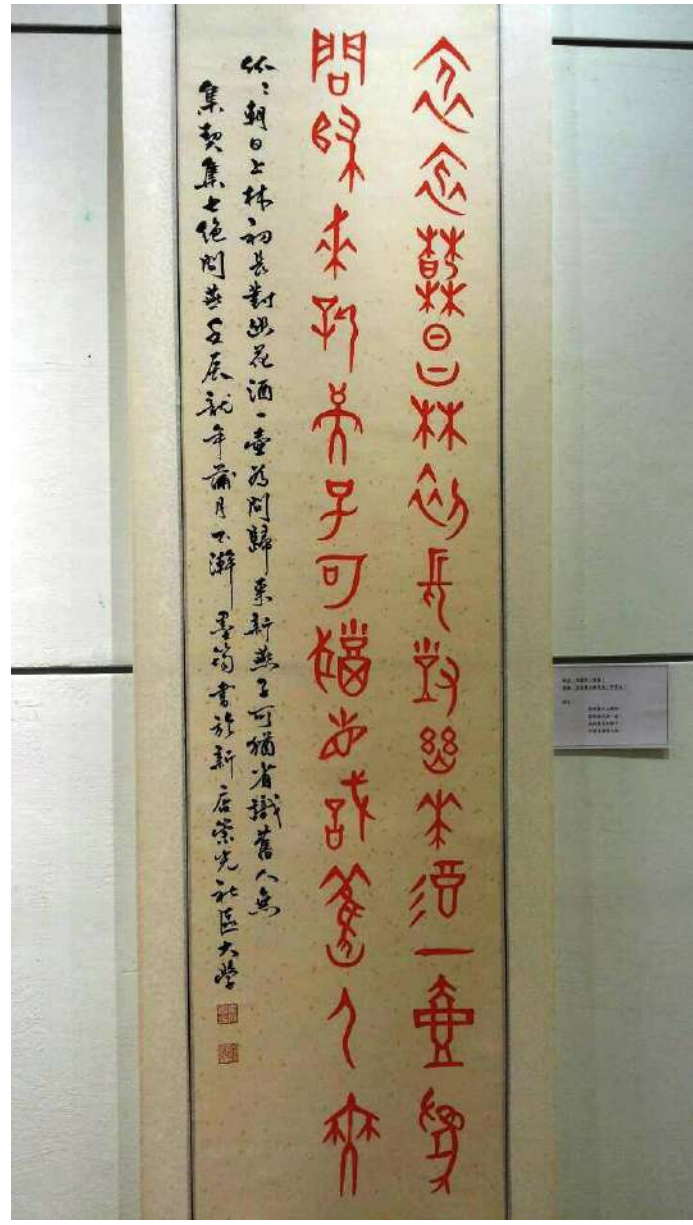 依依朝日上林初長對幽花酒一壺為
問歸來新燕子可猶省識舊人無
依〻朝日上林初長對幽花酒一壺為問歸來新燕子可猶省識舊人無
集契集七絕問燕壬辰龍年蒲月 墨筠書於新店崇光社區大學